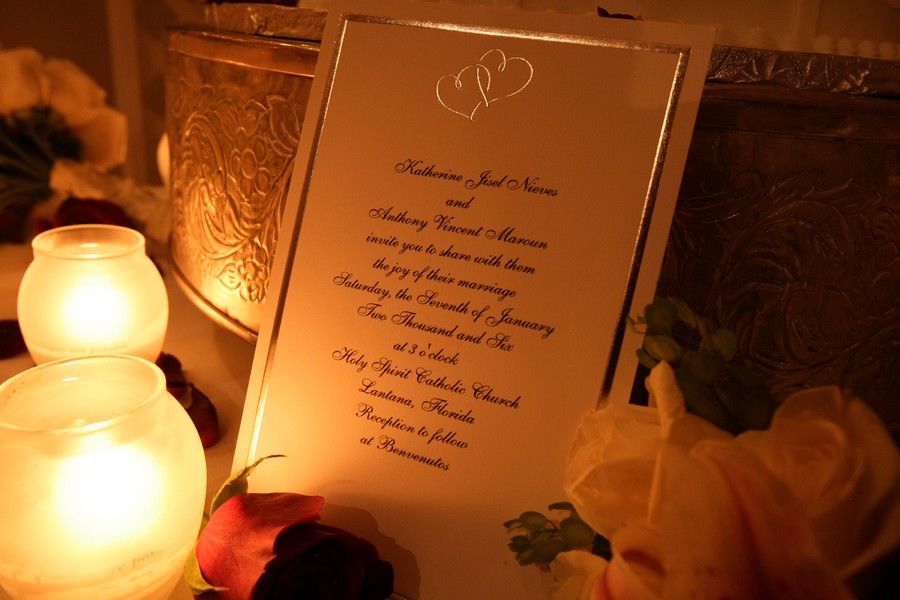 Katherine Jisel Nieves
and
Anthony Vincent Maroun
invite you to share with them
the joy of their marriage
Saturday, the Seventh of January
Two Thousand and Six
at 3 o'clock
Holy Spirit Catholic Church
Lantana, Florida
Reception to follow
at Benvenutos